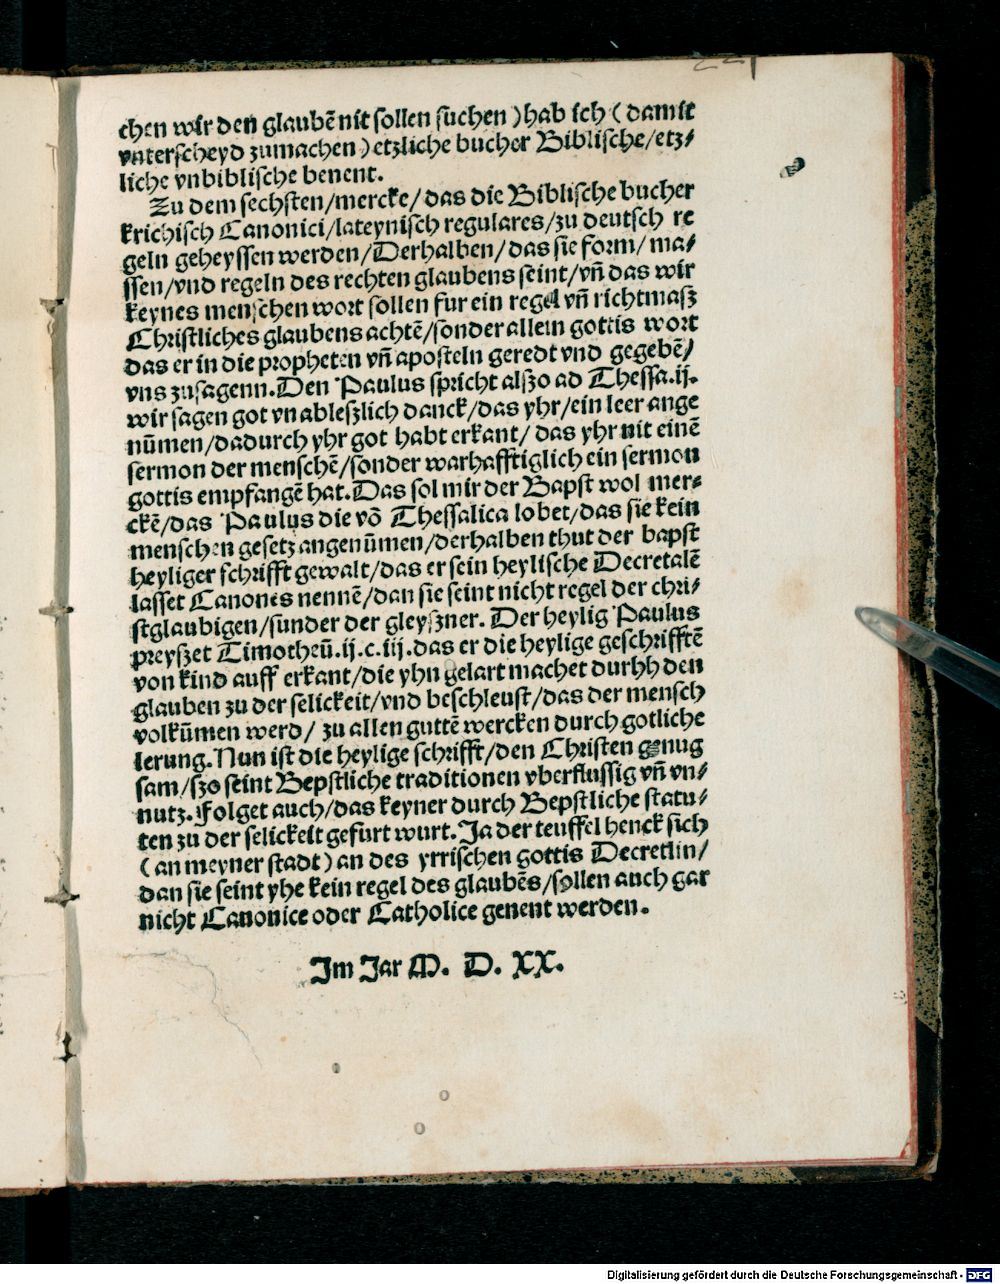 chen wir den glaubē nit sollen suchen ) hab ich ( damit
vnterscheyd zumachen ) etzliche bucher Biblische/etz⸗
liche vnbiblische benent.
Zu dem sechsten/mercke/das die Biblische bucher
krichisch Canonici/lateynisch regulares/zu deutsch re
geln geheyssen werden/Derhalben/das sie form/ma⸗
ssen/vnd regeln des rechten glaubens seint/vn̄ das wir
keynes menschen wort sollen fur ein regel vn̄ richtmasz
Christliches glaubens achtē/sonder allein gottis wort
das er in die propheten vn̄ aposteln geredt vnd gegebē/
vns zusagenn. Den Paulus spricht alszo ad Thessa.ij.
wir sagen got vnableszlich danck/das yhr/ein leer ange
nūmen/dadurch yhr got habt erkant/das yhr nit einē
sermon der menschē/sonder warhafftiglich ein sermon
gottis empfangē hat. Das sol mir der Bapst wol mer⸗
ckē/das Paulus die vō Thessalica lobet/das sie kein
menschen gesetz angenūmen/derhalben thut der bapst
heyliger schrifft gewalt/das er sein heylische Decretalē
lasset Canones nennē/dan sie seint nicht regel der chri⸗
stglaubigen/sunder der gleyszner. Der heylig Paulus
preyszet Timotheū.ij.c.iij.das er die heylige geschrifftē
von kind auff erkant/die yhn gelart machet durhh den
glauben zu der selickeit/vnd beschleust/das der mensch
volkūmen werd/ zu allen guttē wercken durch gotliche
lerung. Nun ist die heylige schrifft/den Christen genug
sam/szo seint Bepstliche traditionen vberflussig vn̄ vn⸗
nutz. Folget auch/das keyner durch Bepstliche statu⸗
ten zu der selickeit gefurt wurt. Ja der teuffel henck sich
( an meyner stadt ) an des yrrischen gottis Decretlin/
dan sie seint yhe kein regel des glaubēs/sollen auch gar
nicht Canonice oder Catholice genent werden.
Im Jar M. D. XX.
Digitalisierung gefördert durch die Deutsche Forschungsgemeinschaft - DFG